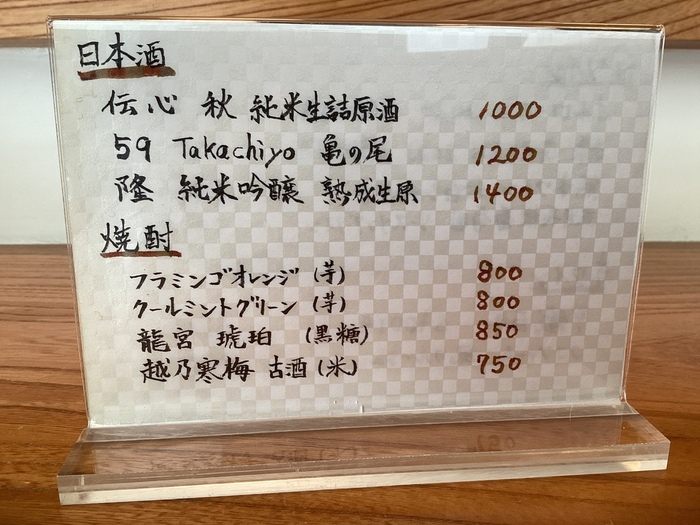 日本酒
伝心 秋 純米生詰原酒 1000
59 Takachiyo 亀の尾 1200
隆 純米吟醸 熟成生原 1400
焼酎
フラミンゴオレンジ (芋) 800
クールミントグリーン (芋) 800
龍宮 琥珀 (黒糖) 850
越乃寒梅 古酒 (米) 750